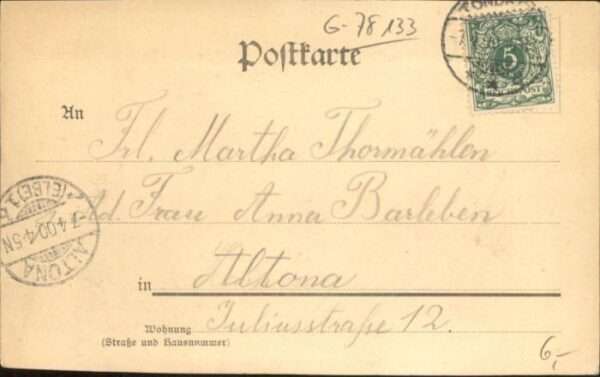 G-78 133
TONDE
Postkarte
5
REICHSPOST
An
Frl. Martha Thormählen
Ad. Frau Anna Barleben
(ELBE)1
7.4.00.4-5N
ALTONA
in Altona
Wohnung Juliusstraße 12.
(Straße und Hausnummer)
6,-